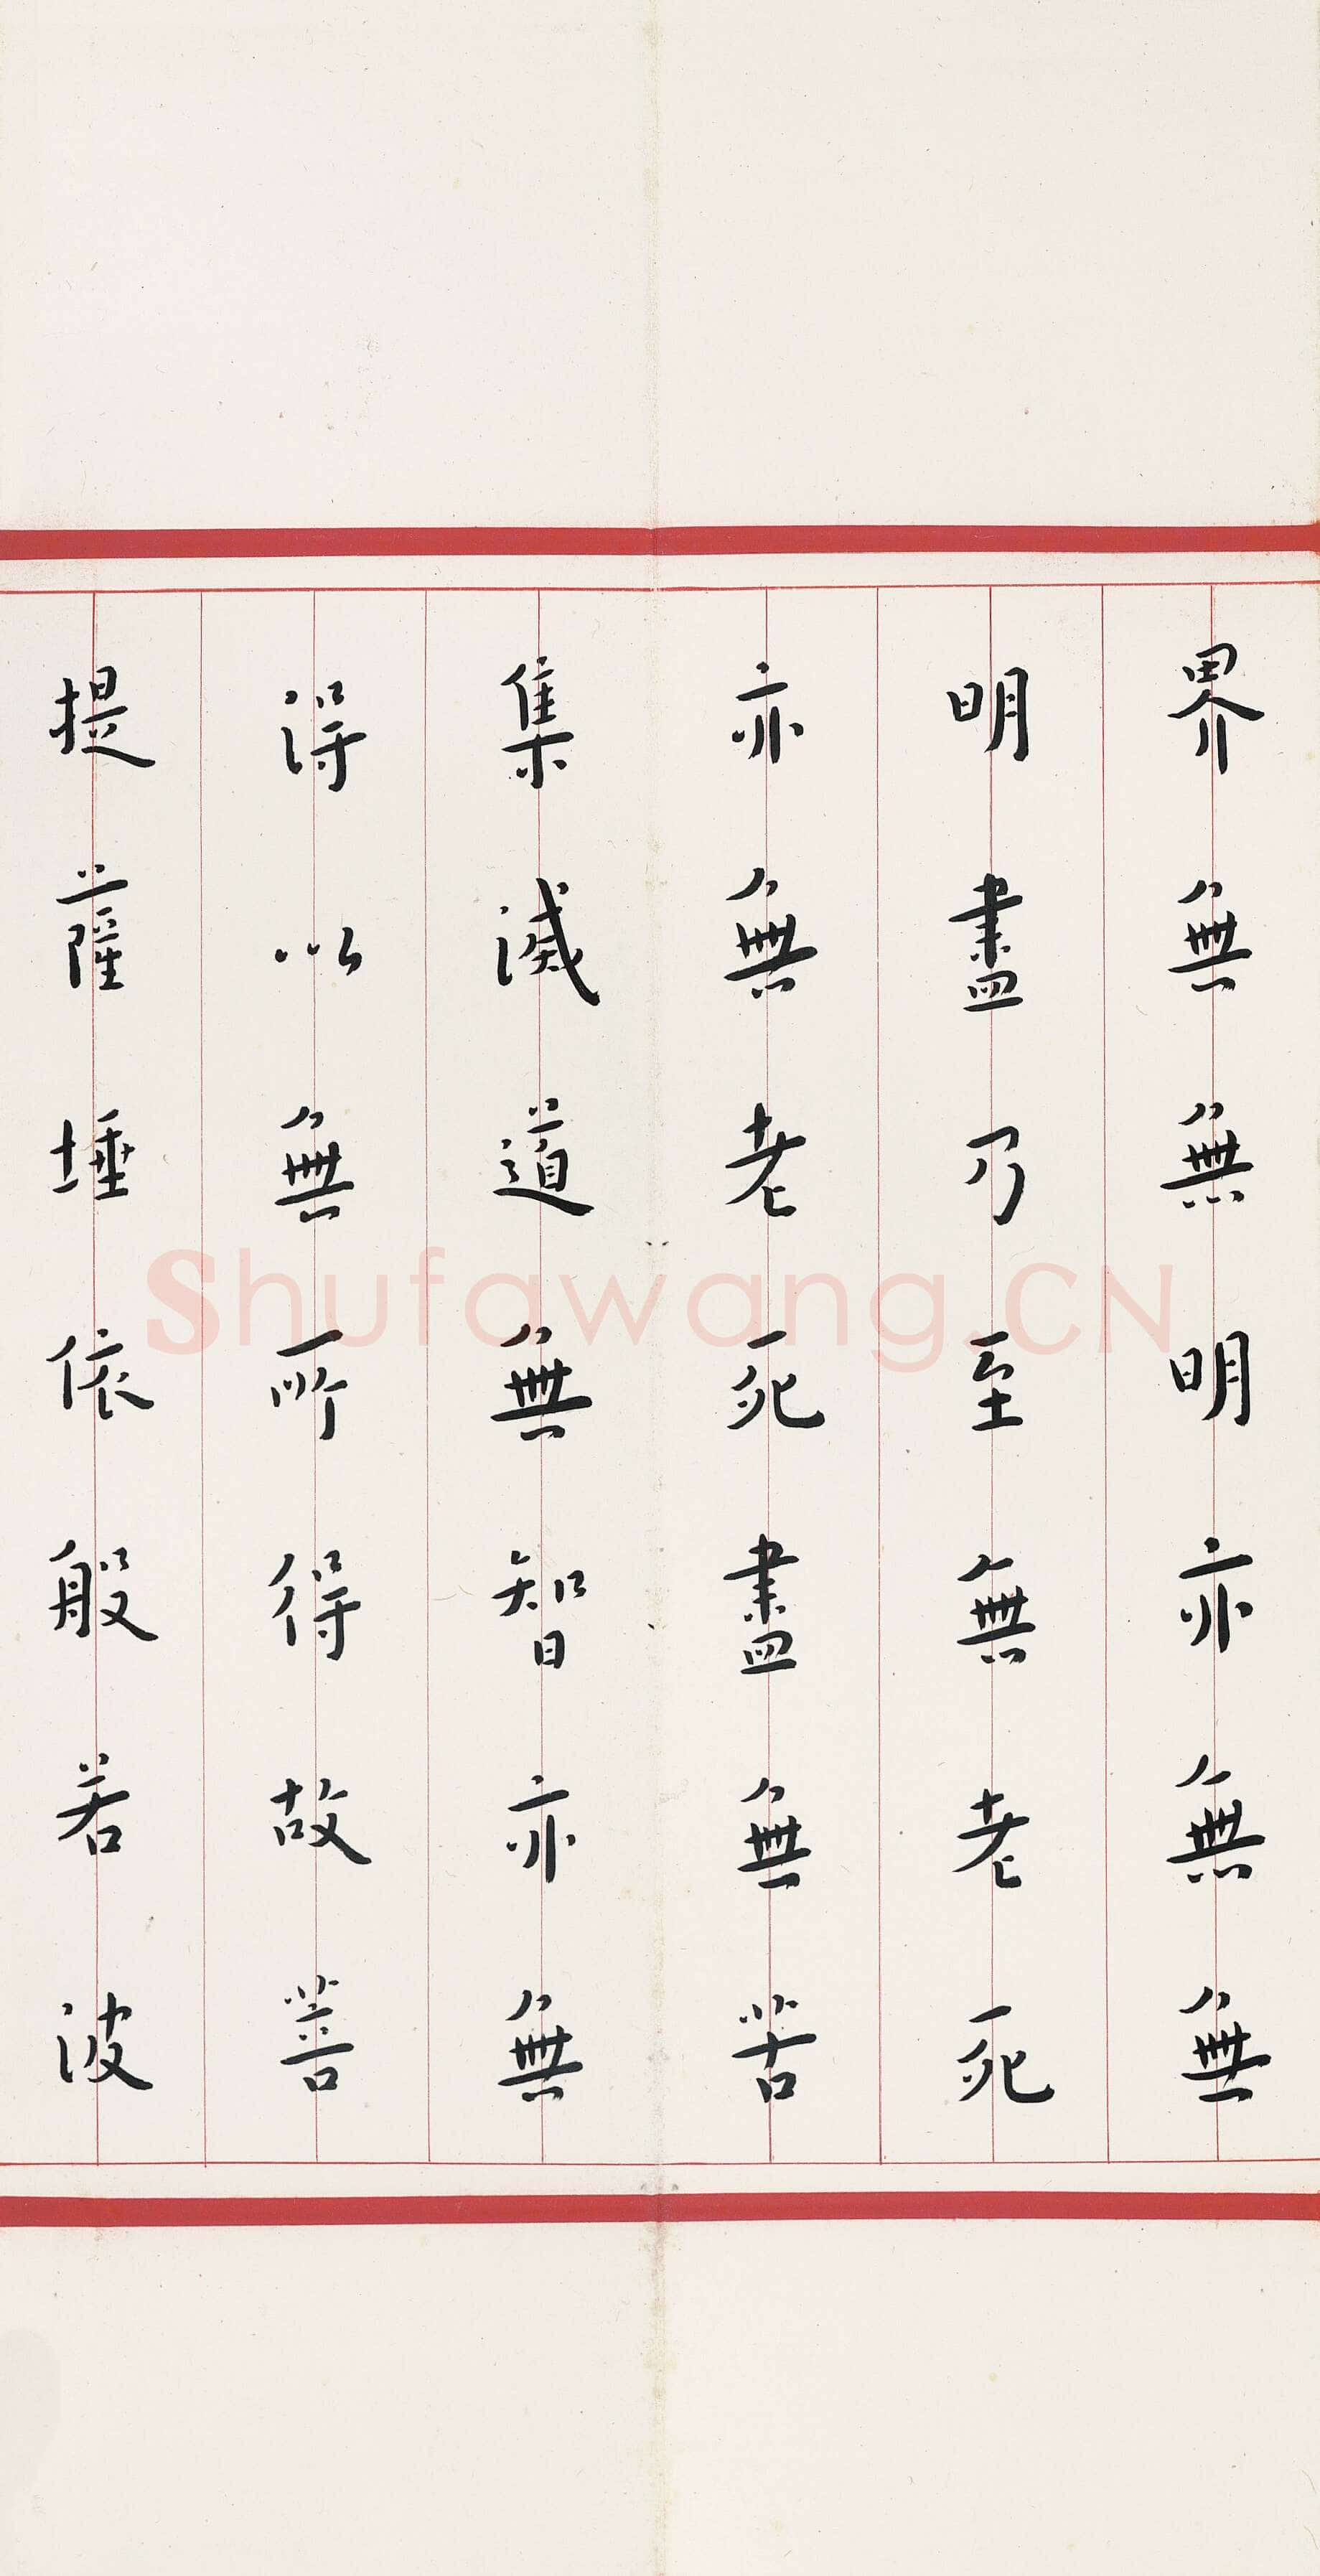 界無無明亦無無
明盡乃至無老死
亦無老死盡無苦
集滅道無智亦無
得以無所得故菩
提薩埵依般若波
Shufawang.CN